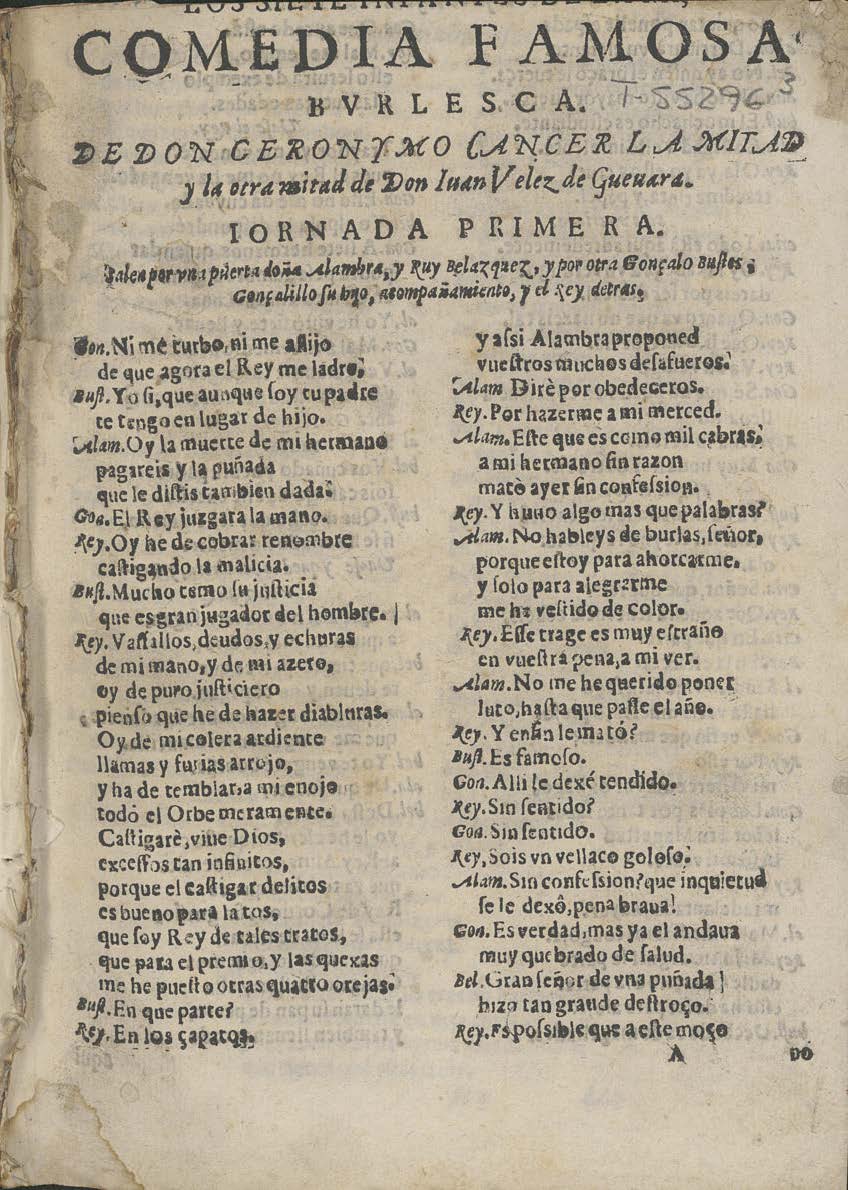 LOS SIETE INFANTES DE LARA,
COMEDIA FAMOSA
BVRLESCA.
T-55296 3
DE DON GERONYMO CANCER LA MITAD
y la otra mitad de Don Iuan Velez de Gueuara.
IORNADA PRIMERA.
Salen por vna puerta doña Alambra, y Ruy Belazquez, y por otra Gonçalo Bustos,
Gonçalillo su hijo, acompañamiento, y el Rey detras.
Gon. Ni me turbo, ni me aflijo
de que agora el Rey me ladre;
Bust. Yo si, que aunque soy tu padre
te tengo en lugar de hijo.
Alam. Oy la muerte de mi hermano
pagareis y la puñada
que le distis tambien dada.
Gon. El Rey juzgara la mano.
Rey. Oy he de cobrar renombre
castigando la malicia.
Bust. Mucho temo su justicia
que es gran jugador del hombre.
Rey. Vassallos, deudos, y echuras
de mi mano, y de mi azero,
oy de puro justiciero
pienso que he de hazer diabluras.
Oy de mi colera ardiente
llamas y furias arrojo,
y ha de temblar a mi enojo
todo el Orbe meramente.
Castigarè, viue Dios,
excessos tan infinitos,
porque el castigar delitos
es bueno para la tos,
que soy Rey de tales tratos,
que para el premio, y las quexas
me he puesto otras quatro orejas.
Bust. En que parte?
Rey. En los çapatos.
y assi Alambra proponed
vuestros muchos desafueros.
Alam. Dirè por obedeceros.
Rey. Por hazerme a mi merced.
Alam. Este que es como mil cabras,
a mi hermano sin razon
matò ayer sin confession.
Rey. Y huuo algo mas que palabras?
Alam. No hableys de burlas, señor,
porque estoy para ahorcarme.
y solo para alegrarme
me he vestido de color.
Rey. Esse trage es muy estraño
en vuestra pena, a mi ver.
Alam. No me he querido poner
luto, hasta que passe el año.
Rey. Y en fin le mató?
Bust. Es famoso.
Gon. Alli le dexé tendido.
Rey. Sin sentido?
Gon. Sin sentido.
Rey, Sois vn vellaco goloso.
Alam. Sin confession? que inquietud
se le dexô, pena braua!
Gon. Es verdad, mas ya el andaua
muy quebrado de salud.
Bel. Gran señor de vna puñada
hizo tan grande destroço.
Rey. Es possible que a este moço
A
do